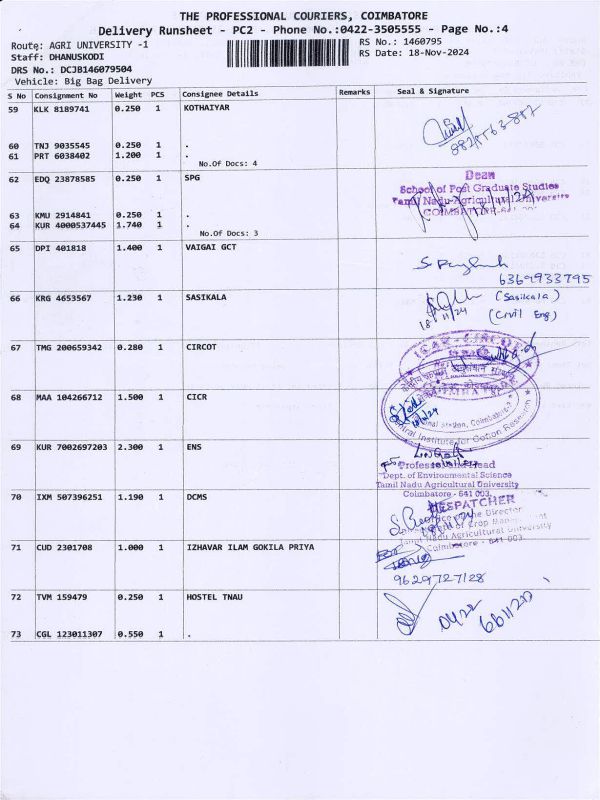 THE PROFESSIONAL COURIERS, COIMBATORE
Delivery Runsheet - PC2 - Phone No.:0422-3505555 - Page No.:4
Route: AGRI UNIVERSITY -1
RS No.: 1460795
Staff: DHANUSKODI
RS Date: 18-Nov-2024
DRS No.: DCJB146079504
Vehicle: Big Bag Delivery
S No Consignment No Weight PCS Consignee Details Remarks Seal & Signature
59 KLK 8189741 0.250 1 KOTHAIYAR
60 TNJ 9035545 0.250 1 .
61 PRT 6038402 1.200 1 .
No.Of Docs: 4
62 EDQ 23878585 0.250 1 SPG
Dean
School of Post Graduate Studies
Tamil Nadu Agricultural University
63 KMU 2914841 0.250 1 .
64 KUR 4000537445 1.740 1 .
No.Of Docs: 3
65 DPI 401818 1.400 1 VAIGAI GCT
6369933795
66 KRG 4653567 1.230 1 SASIKALA
(Sasikala)
18/11/24 (Civil Eng)
67 TMG 200659342 0.280 1 CIRCOT
ICAR - CIRCOT
68 MAA 104266712 1.500 1 CICR
Regional Station, Coimbatore-3
Central Institute for Cotton Research
69 KUR 7002697203 2.300 1 ENS
Professor and Head
Dept. of Environmental Science
Tamil Nadu Agricultural University
Coimbatore - 641 003.
70 IXM 507396251 1.190 1 DCMS
DESPATCHER
Office of the Director
Tamil Nadu Agricultural University
Coimbatore - 641 003.
71 CUD 2301708 1.000 1 IZHAVAR ILAM GOKILA PRIYA
9629727128
72 TVM 159479 0.250 1 HOSTEL TNAU
0422
73 CGL 123011307 0.550 1 .